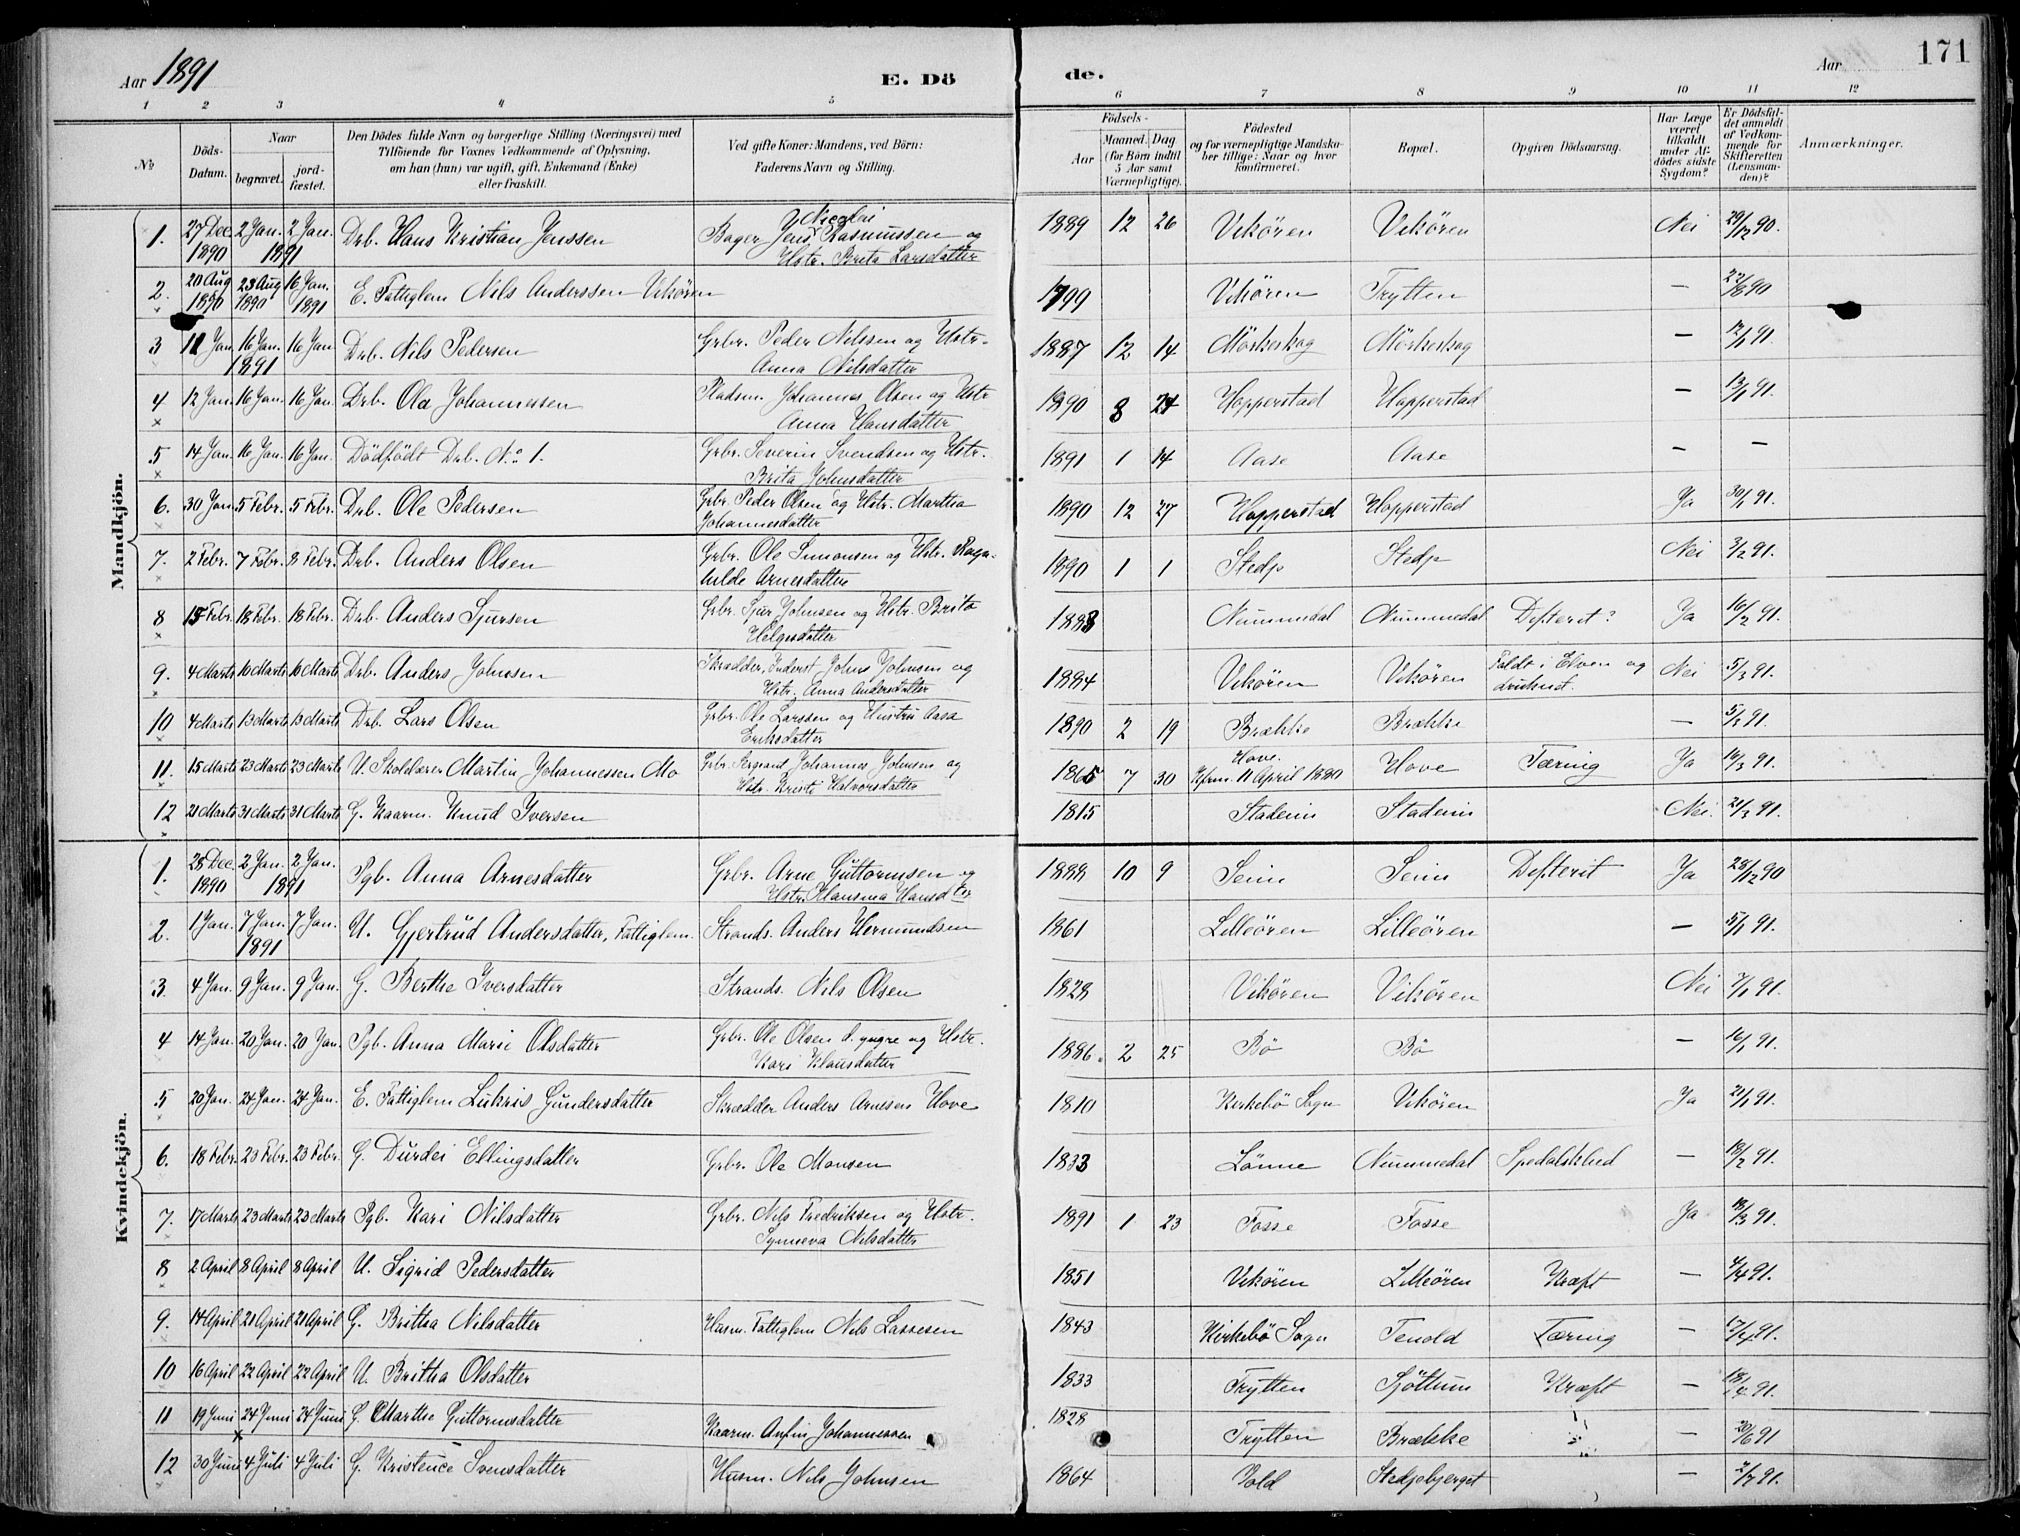 Aar 1891 E. Dö de. Aar 171
1 2 3 4 5 6 7 8 9 10 11 12
No
Döds-Datum.
Naar
begravet.
jordfæstet.
Den Dödes fulde Navn og borgerlige Stilling (Næringsvei) med
Tilföiende for Voxnes Vedkommende af Oplysning,
om han (hun) var ugift, gift, Enkemand (Enke)
eller fraskilt.
Ved gifte Koner: Mandens, ved Börn:
Faderens Navn og Stilling.
Födsels-
Aar
Maaned. Dag
(for Börn indtil
5 Aar samt
Værnepligtige).
Födested
og for værnepligtige Mandskaber tillige: Naar og hvor
konfirmeret.
Bopæl.
Opgiven Dödsaarsag.
Har Læge
været
tilkaldt
under Afdödes sidste
Sygdom?
Er Dödsfaldet anmeldt
af Vedkommende for
Skifteretten
(Lensmanden)?
Anmærkninger.
Mandkjön.
1. 27 Dec. 1890 2 Jan. 2 Jan. 1891 Drb. Hans Kristian Jenssen Bager Jens Nicolai Rasmussen og Hstr. Brita Larsdatter 1889 12 26 Vikören Vikören Nei 29/12 90.
2. 20 Aug 1890 23 Aug 1890 16 Jan. 1891 E. Fattiglem Nils Anderssen Vikören 1799 Vikören Trytten — 22/8 90
3 11 Jan 16 Jan. 1891 16 Jan Drb. Nils Pedersen Grbr. Peder Nilssen og Hstr. Anna Nilsdatter 1887 12 14 Mörkeskog Mörkeskog — 12/1 91.
4 12 Jan. 16 Jan. 16 Jan. Drb. Ola Johannessen Pladsm. Johannes Olsen og Hstr Anna Hansdatter 1890 8 24 Hopperstad Hopperstad — 13/1 91.
5 14 Jan. 16 Jan. 16 Jan. Dödfödt Drb. No 1. Grbr. Severin Svendsen og Hstr. Brita Johnsdatter 1891 1 14 Aase Aase — —
6. 30 Jan. 5 Febr. 5 Febr. Drb. Ole Pedersen Grbr. Peder Olsen og Hstr. Martha Johannesdatter 1890 12 27 Hopperstad Hopperstad Ja 30/1 91.
7. 2 Febr. 7 Febr. 8 Febr. Drb. Anders Olsen Grbr. Ole Simonsen og Hstr. Ragnhilde Arnesdatter 1890 1 1 Stedje Stedje Nei 3/2 91.
8 15 Febr. 18 Febr. 18 Febr. Drb. Anders Sjursen Grbr. Sjur Johnsen og Hstr. Brita Helgesdatter 1883 Nummedal Nummedal Difterit? Ja 16/2 91.
9. 4 Marts 10 Marts 10 Marts Drb. Anders Johnsen Skrædder, Inderst Johns Johnsen og Hstr. Anna Andersdatter 1884 Vikören Vikören Faldt i Elven og druknet. Nei 5/3 91.
10 4 Marts 13 Marts 13 Marts Drb. Lars Olsen Grbr. Ole Larssen og Hustru Aasa Eriksdatter 1890 2 19 Brække Brække — 5/3 91.
11. 15 Marts 23 Marts 23 Marts U. Skolelærer Martin Johannessen Mo Grbr. Sergeant Johannes Johnsen og Hstr. Kristi Halvorsdatter 1865 7 30 Hove. Kfrm. 11 April 1880 Hove Tæring Ja 19/3 91.
12 21 Marts 31 Marts 31 Marts G. Kaarm. Knud Iversen 1815 Stadein Stadein Nei. 21/3 91.
Kvindekjön.
1. 28 Dec. 1890 2 Jan. 2 Jan. 1891 Pgb. Anna Arnesdatter Grbr. Arne Guttormsen og Hstr. Hansina Hansdtter 1888 10 9 Seim Seim Difterit Ja 28/12 90
2. 1 Jan. 7 Jan. 1891 7 Jan. U. Gjertrud Andersdatter, Fattiglem. Strands. Anders Hermundsen 1861 Lilleören Lilleören — 5/1 91.
3. 4 Jan. 9 Jan. 9 Jan. G. Berthe Iversdatter Strands. Nils Olsen 1828 Vikören Vikören Nei 7/1 91.
4 14 Jan. 20 Jan. 20 Jan. Pgb. Anna Marie Olsdatter Grbr. Ole Olsen d. yngre og Hstr. Kari Klausdatter 1886. 2 25 Bö Bö — 16/1 91.
5 20 Jan. 24 Jan. 24 Jan. E. Fattiglem Lukris Gundersdatter Skrædder Anders Arnesen Hove 1810 Kirkebö Sogn Vikören Ja 21/1 91.
6. 18 Febr. 23 Febr. 23 Febr. G. Durdei Ellingsdatter Grbr. Ole Monsen 1833 Lönne Nummedal Spedalskhed — 18/2 91.
7. 17 Marts 23 Marts 23 Marts Pgb. Kari Nilsdatter Grbr. Nils Fredriksen og Hstr. Synneva Nilsdatter 1891 1 23 Fosse Fosse Ja 18/3 91.
8 2 April 8 April 8 April U. Sigrid Pedersdatter 1851 Vikören Lilleören Kræft — 4/4 91.
9. 14 April 21 April 21 April G. Brittha Nilsdatter Husm. Fattiglem Nils Lassesen 1843 Kirkebö Sogn Tenold Tæring — 17/4 91.
10 16 April 22 April 22 April U. Brittha Olsdatter 1833 Trytten Sjöttum Kræft — 18/4 91.
11 19 Juni 24 Juni 24 Juni G. Marthe Guttormsdatter Kaarm. Anfin Johannessen 1828 Trytten Brække 20/6 91
12 30 Juni 4 Juli 4 Juli G. Kristence Svensdatter Husm. Nils Johnsen 1864 Vold Stedjebjerget — 2/7 91.